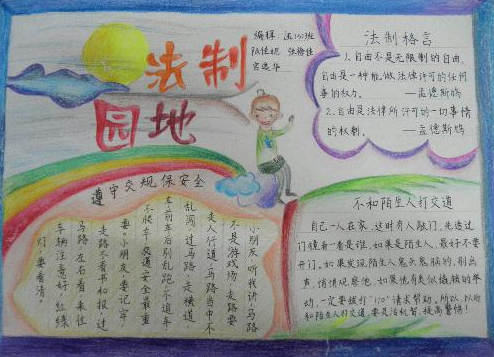 法制
园地
编辑
法制格言
1.自由不是无限制的自由,
自由是一种能做法律许可的任何
事的权力。 —孟德斯鸠
2.自由是法律所许可的一切事情
的权利。 —孟德斯鸠
遵守交规保安全
小朋友听我讲,马路
不是游戏场,走路要
走人行道,马路当中不
乱闯,过马路,走横道
车前车后别乱跑,不追车
不扒车,交通安全最重
要,小朋友,要记牢,
走路不看书和报,过
马路,左右看,来往
车辆注意好,红绿
灯,要看清。
不和陌生人打交道
自己一人在家,这时有人敲门,先透过
门镜看看是谁,如果是陌生人,最好不要
开门。如果发现陌生人鬼头鬼脑的,别出
声,悄悄观察他。如果他有类似撬锁的举
动,一定要拨打"110"请求帮助。所以,以后
和陌生人打交道,要灵活机智,提高警惕!